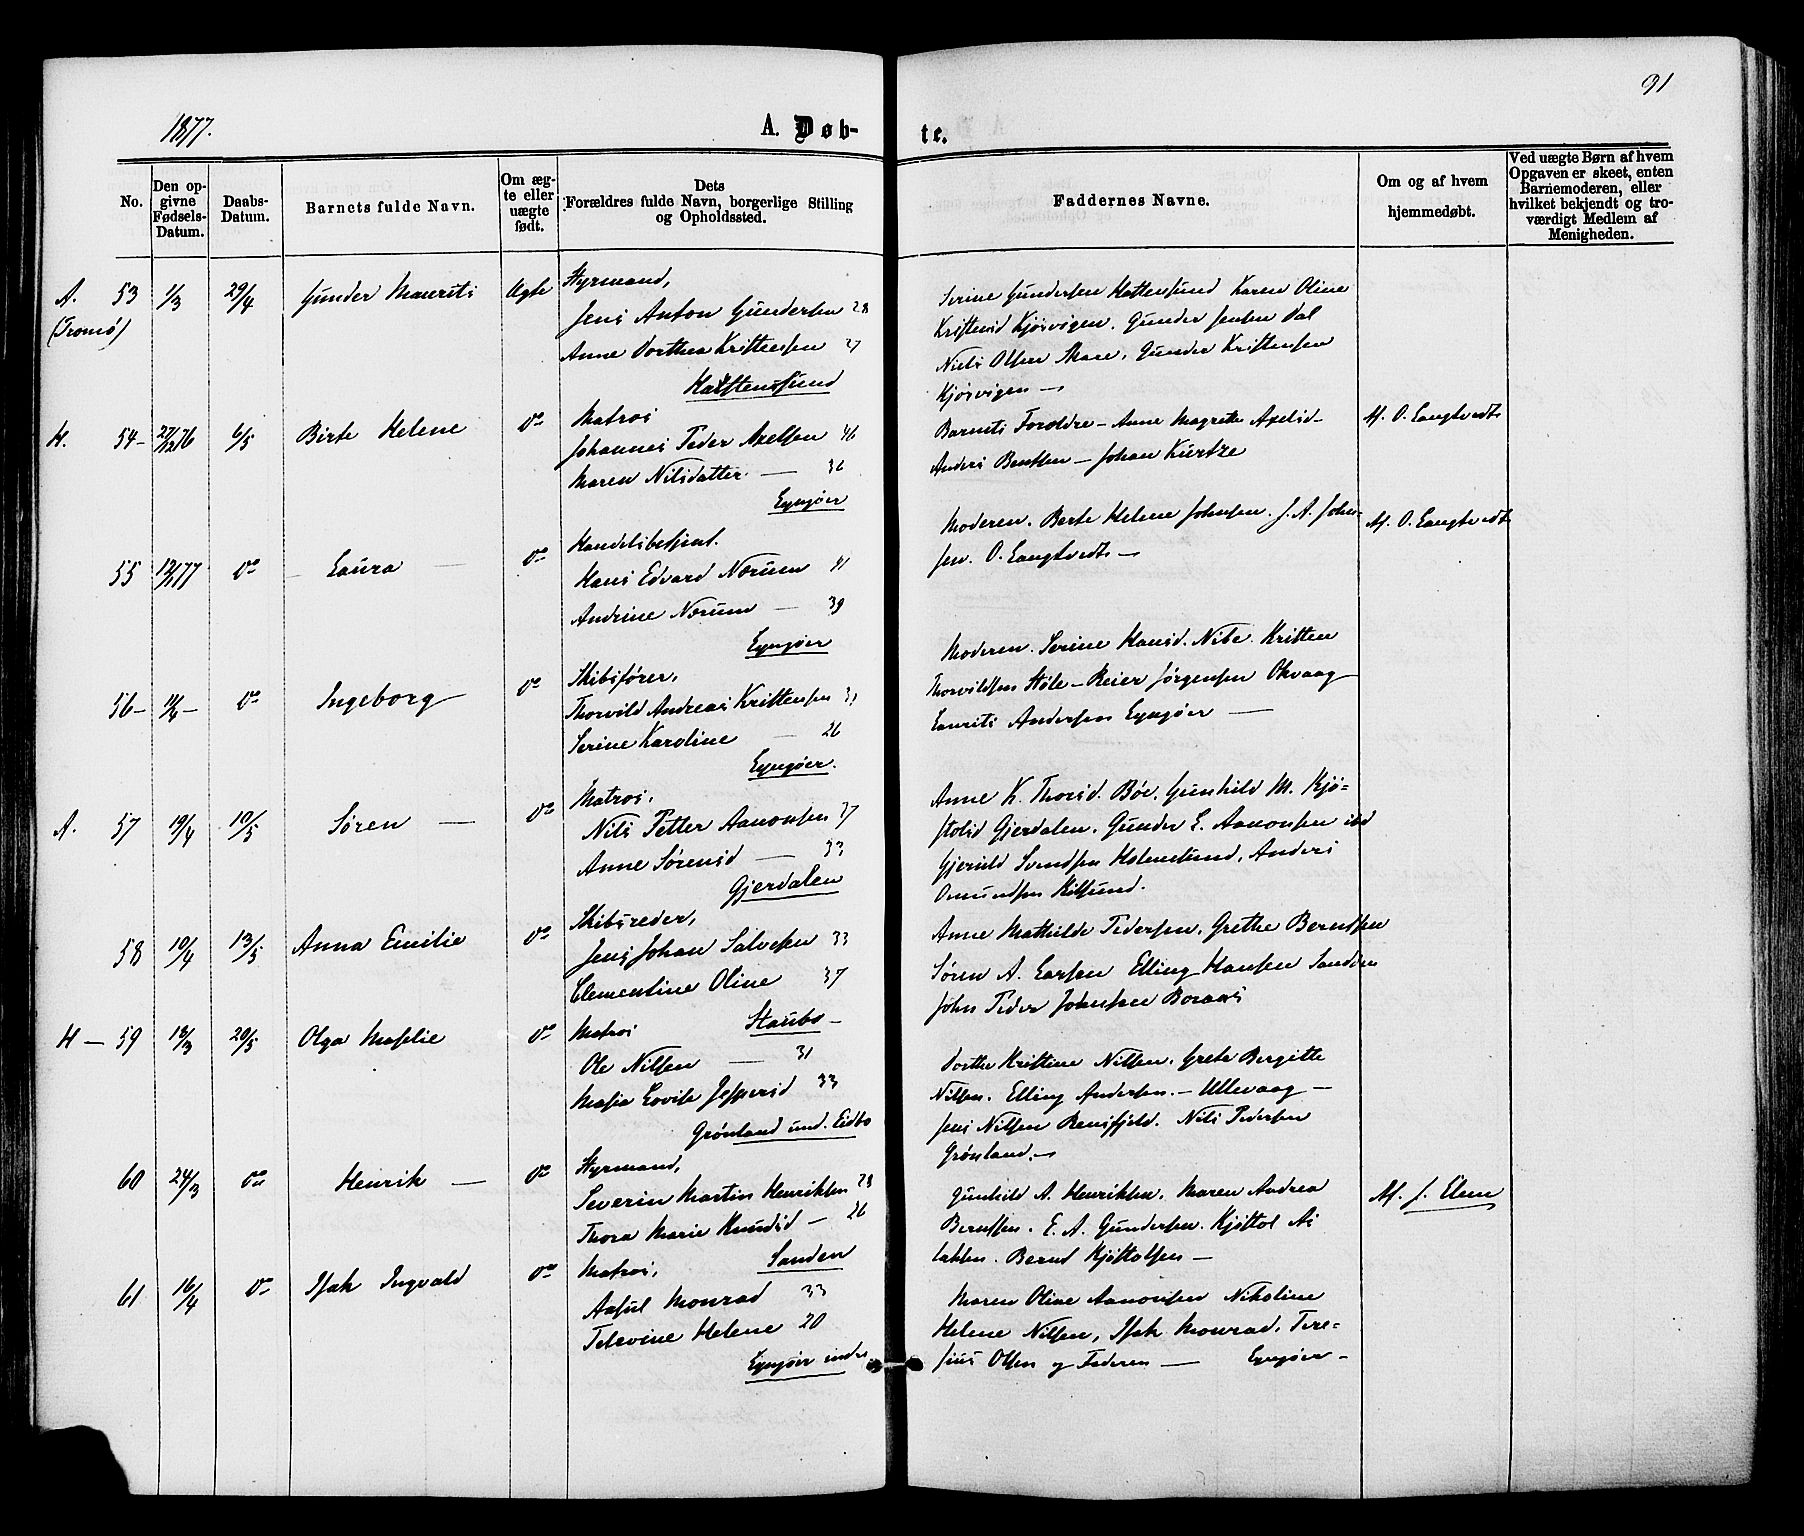 91
1877.
A. Døb-
te.
No.
Den opgivne Fødsels-Datum.
Daabs-Datum.
Barnets fulde Navn.
Om ægte eller uægte født.
Dets Forældres fulde Navn, borgerlige Stilling og Opholdssted.
Faddernes Navne.
Om og af hvem hjemmedøbt.
Ved uægte Børn af hvem Opgaven er skeet, enten Barnemoderen, eller hvilket bekjendt og troværdigt Medlem af Menigheden.
A. 53 1/3 29/4 Gunder Mauritz Ægte Styrmand,
(Tromø)
Jens Anton Gundersen 28
Anne Dorthea Kristensen 27
Hattensund
Serine Gundersen Hattensund Karen Oline
Kristensd Kjøsvigen. Gunder Jensen Dal
Niels Olsen Skare, Gunder Kristensen
Kjøsvigen —
H. 54- 27/12 76 6/5 Birte Helene do Matros
Johannes Peder Axelsen 46
Maren Nilsdatter — 36
Lyngøer
Barnets Foroldre — Anne Magrete Axelsd-
Anders Bentsen — Johan Kiertze
Af. O. Langtvedt
55 12/1 77 do Laura — do Handelsbetjent.
Hans Edvard Nærum 41
Andrine Nærum — 39
Lyngøer
Moderen. Berte Helene Johnsen. J. A. John-
sen. O. Langtvedt —
Af. O. Langtvedt
56 — 11/4 — do Ingeborg do Skibsfører,
Thorvild Andreas Kristensen 31
Serine Karoline — 26
Lyngøer.
Moderen. Serine Hansd. Nibe. Kristen
Thorvildsen Støle — Reier Jørgensen Okvaag
Laurits Andersen Lyngøer —
A. 57 19/4 10/5 Søren — do Matros,
Nils Petter Aanonsen 37
Anne Sørensd — 33
Gjerdalen
Anne K. Thorsd. Bøe. Gunhild M. Kjø-
stolsd Gjerdalen. Gunder E. Aanonsen ibd
Gjeruld Svendsen Holmesund, Anders
Omundsen Kilsund.
58 10/4 13/5 Anna Emilie do Skibsreder,
Jens Johan Salvesen 33
Clementine Oline 37
Staubo —
Anne Mathilde Pedersen, Grethe Berntsen
Søren A. Larsen Elling Hansen Sanden
John Peder Johnsen Boraas
H — 59 18/3 20/5 Olga Maslie do Matros
Ole Nilsen — 31
Masia Lovise Jespersd 33
Grønland und. Eidbo
Dorthe Kristine Nilsen. Grete Bergitte
Nilsen. Elling Andersen. — Ullevaag —
Jens Nilsen Rensfjeld. Nils Pedersen
Grønland. —
60 24/3 do Henrik — do Styrmand,
Severin Martin Henriksen 28
Thora Marie Knudsd — 26
Sanden
Gunhild A. Henriksen. Maren Andrea
Berntsen. E. A. Gundersen. Kjøstol As
laksen. Bernt Kjøstolsen —
Af. J. Elen
61 16/4 do Isak Ingvald do Matros,
Aasul Monrad 33
Televine Helene 20
Lyngøer indre
Maren Oline Aanonsen Nikoline
Helene Nilsen, Isak Monrad, Tere-
sius Olsen og Faderen — Lyngøer —